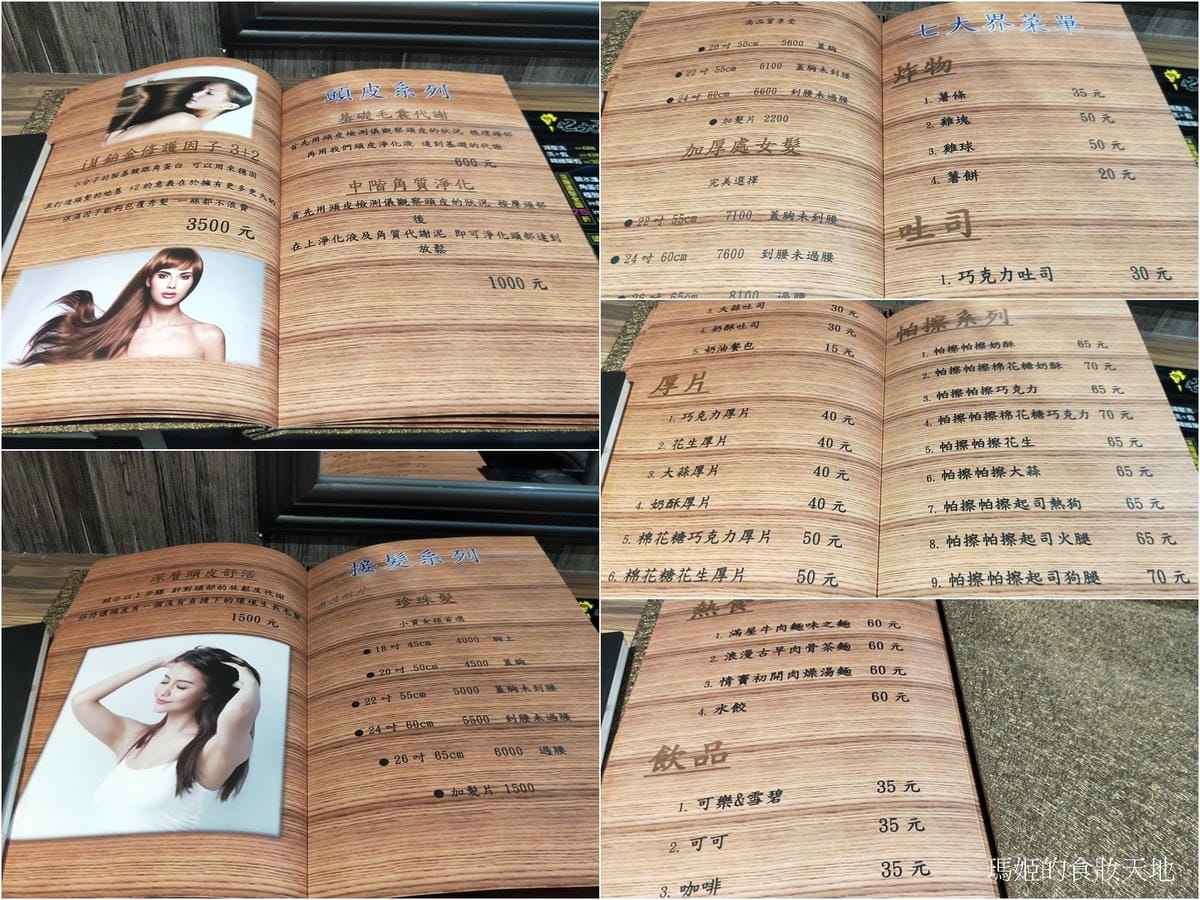 鉑金修護因子 3+2
小分子的胺基酸跟角蛋白 可以用來穩固
並打造頭髮的地基 +2的意義在於擁有更多更大的
保濕因子能夠包覆秀髮 一絲都不浪費
3500 元
頭皮系列
基礎毛囊代謝
首先用頭皮檢測儀觀察頭皮的狀況 梳理頭部
再用我們頭皮淨化液 達到基礎的代謝
600 元
中階角質淨化
首先用頭皮檢測儀觀察頭皮的狀況 按摩頭部
後
在上淨化液及角質代謝泥 即可淨化頭部達到
放鬆
1000 元
深層頭皮舒活
綜合以上步驟 針對頭部的放鬆及代謝
保持讓頭皮有一個沒有負擔下的環境生長毛髮
1500 元
接髮系列
珍珠髮
小資女孩首選
●18吋 45cm 4000 胸上
●20吋 50cm 4500 蓋胸
●22吋 55cm 5000 蓋胸未到腰
●24吋 60cm 5500 到腰未過腰
●26吋 65cm 6000 過腰
●加髮片 1500
高品質享受
●20吋 50cm 5600 蓋胸
●22吋 55cm 6100 蓋胸未到腰
●24吋 60cm 6600 到腰未過腰
●加髮片 2200
加厚處女髮
完美選擇
●22吋 55cm 7100 蓋胸未到腰
●24吋 60cm 7600 到腰未過腰
●26吋 65cm 8100 過腰
七大界菜單
炸物
1. 薯條 35 元
2. 雞塊 50 元
3. 雞球 50 元
4. 薯餅 20 元
吐司
1. 巧克力吐司 30 元
3. 大蒜吐司 30 元
4. 奶酥吐司 30 元
5. 奶油餐包 15 元
厚片
1. 巧克力厚片 40 元
2. 花生厚片 40 元
3. 大蒜厚片 40 元
4. 奶酥厚片 40 元
5. 棉花糖巧克力厚片 50 元
6. 棉花糖花生厚片 50 元
帕擦系列
1. 帕擦帕擦奶酥 65 元
2. 帕擦帕擦棉花糖奶酥 70 元
3. 帕擦帕擦巧克力 65 元
4. 帕擦帕擦棉花糖巧克力 70 元
5. 帕擦帕擦花生 65 元
6. 帕擦帕擦大蒜 65 元
7. 帕擦帕擦起司熱狗 65 元
8. 帕擦帕擦起司火腿 65 元
9. 帕擦帕擦起司狗腿 70 元
熱食
1. 滿屋牛肉麵味之麵 60 元
2. 浪漫古早肉骨茶麵 60 元
3. 情竇初開肉燥湯麵 60 元
4. 水餃 60 元
飲品
1. 可樂&雪碧 35 元
2. 可可 35 元
3. 咖啡 35 元
瑪姬的食妝天地